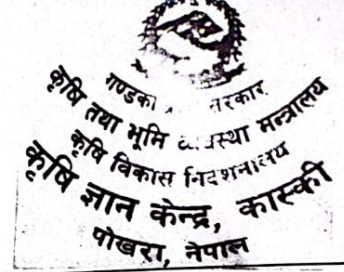 गण्डकी सरकार
कृषि तथा भूमि व्यवस्था मन्त्रालय
कृषि विकास निर्देशनालय
कृषि ज्ञान केन्द्र, कास्की
पोखरा, नेपाल